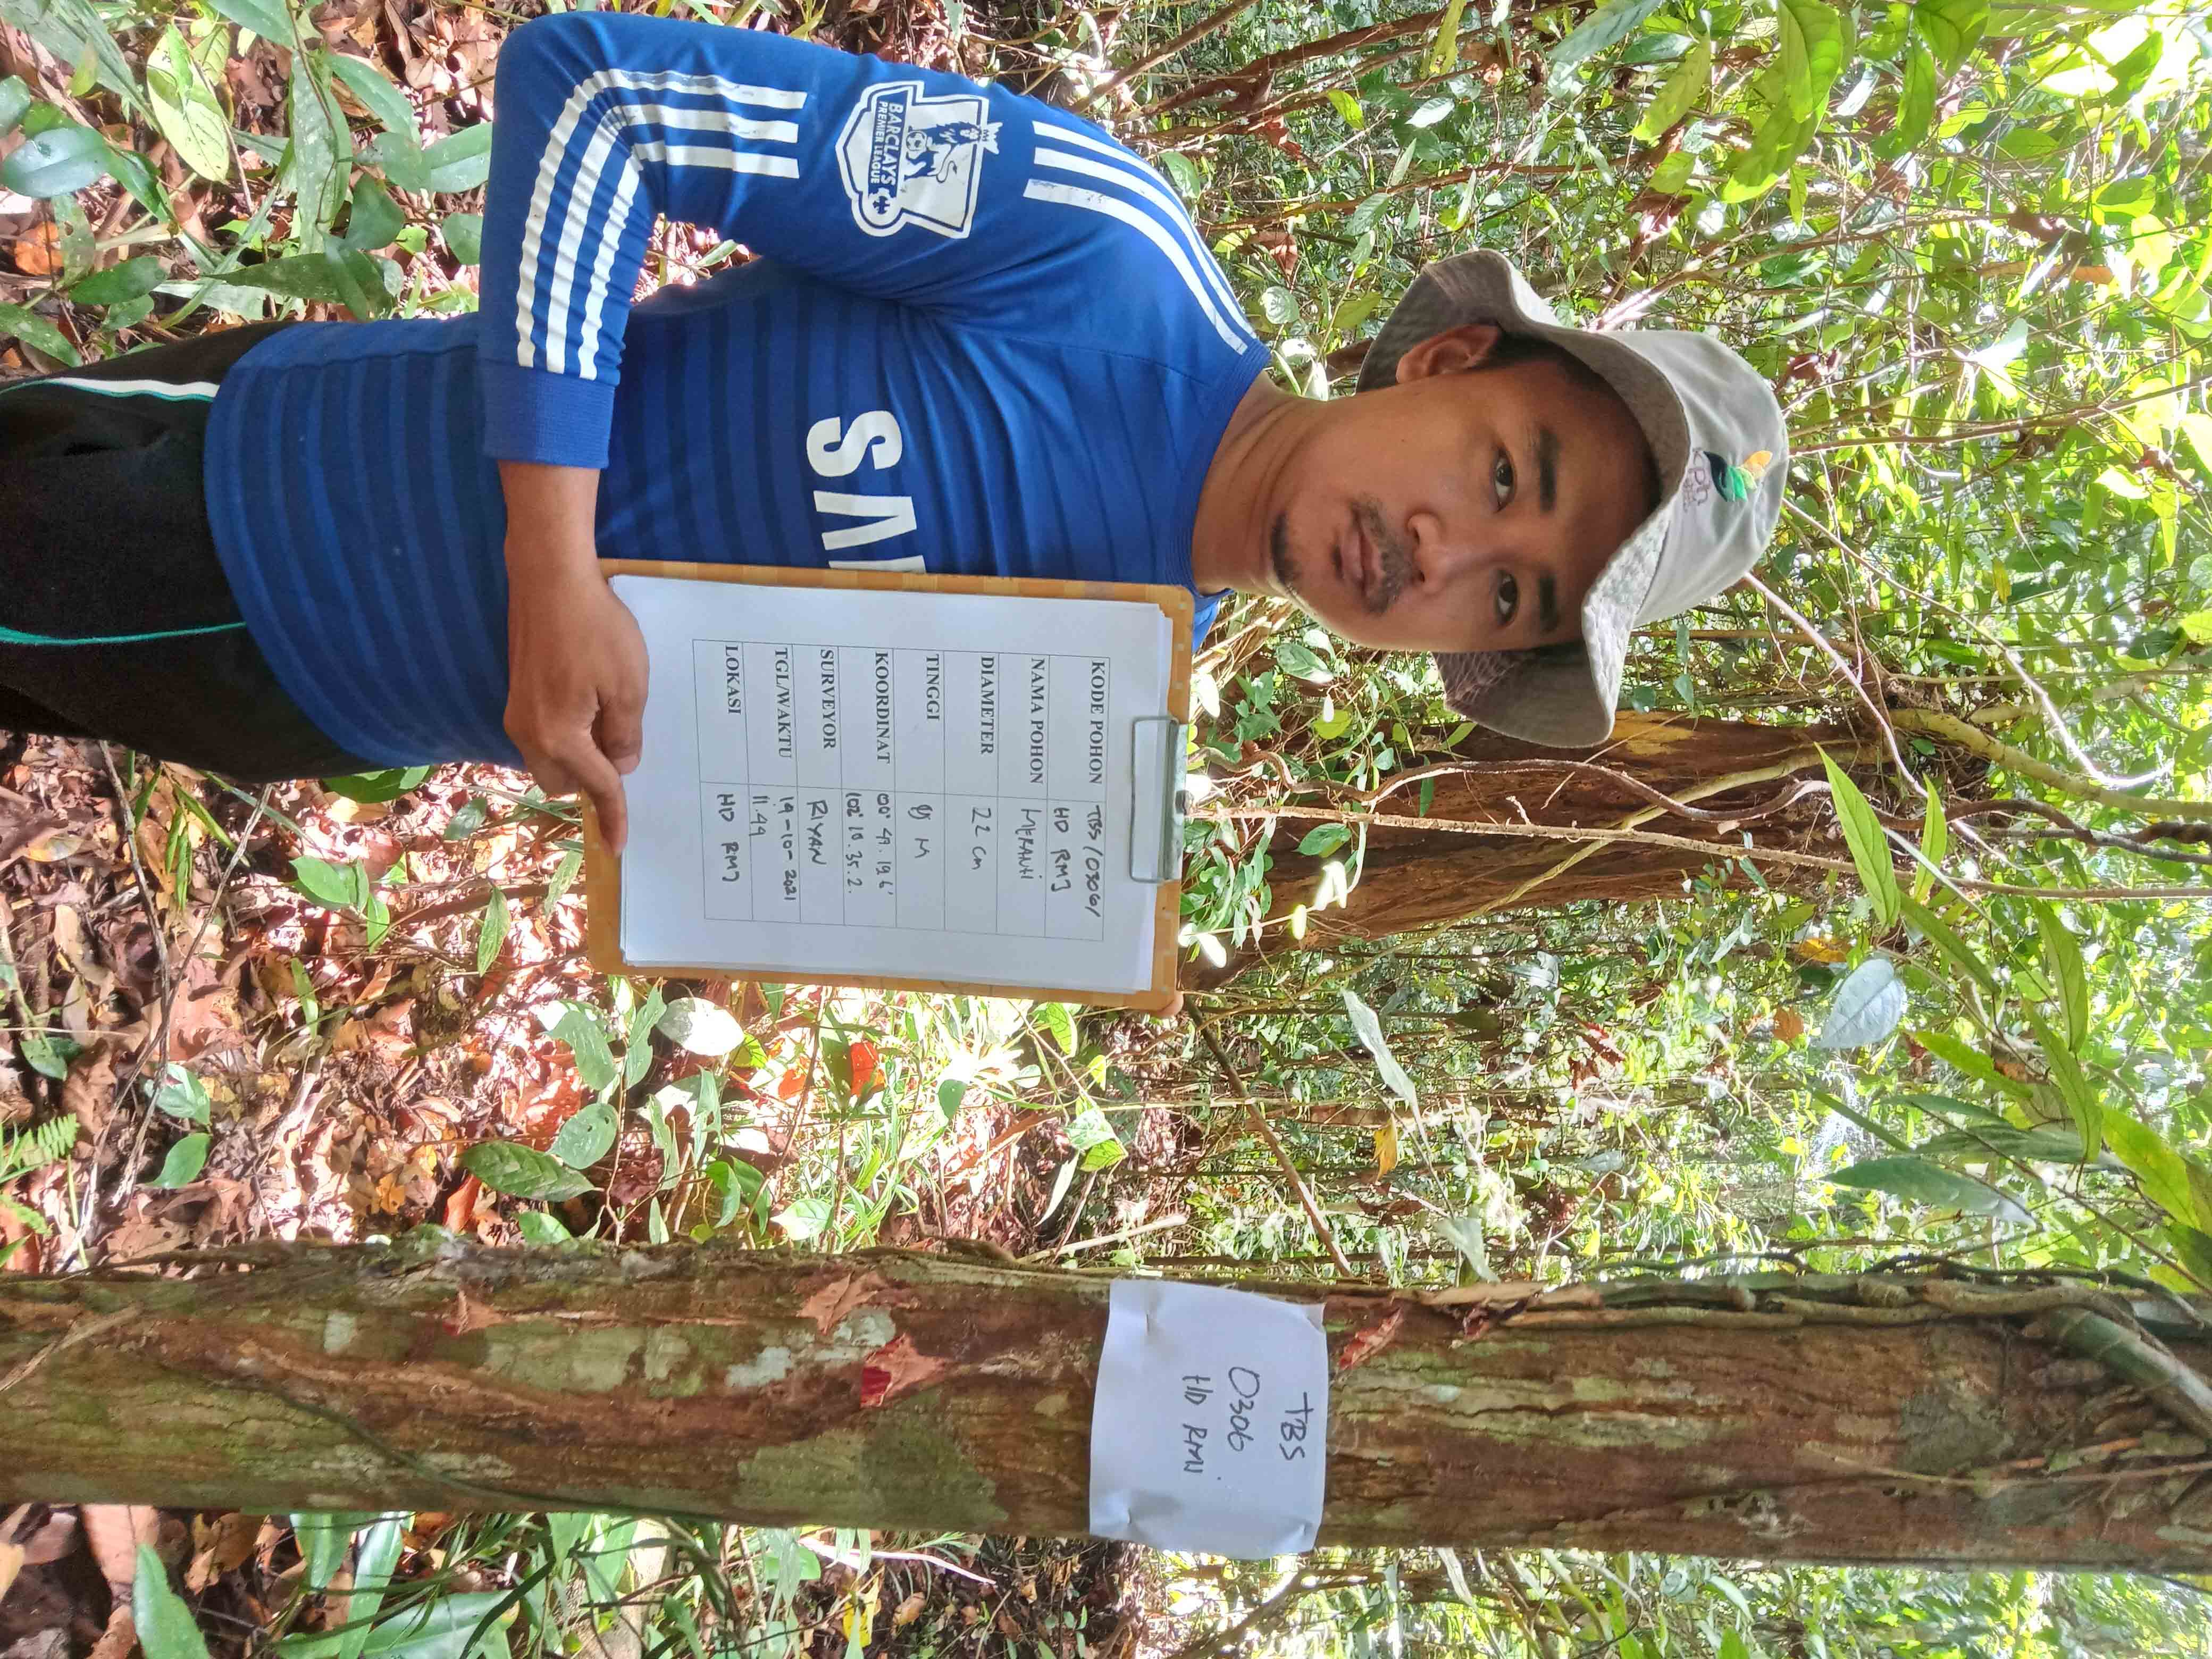 BARCLAYS
PREMIER LEAGUE
SA
kph
KODE POHON TBS/0306/
HD RMJ
NAMA POHON MERANTI
DIAMETER 22 cm
TINGGI M
KOORDINAT 00° 49. 19.6'
102° 10. 35. 2.
SURVEYOR RIYAN
TGL/WAKTU 19-10-2021
11.49
LOKASI HD RMJ
TBS
0306
HD RMJ